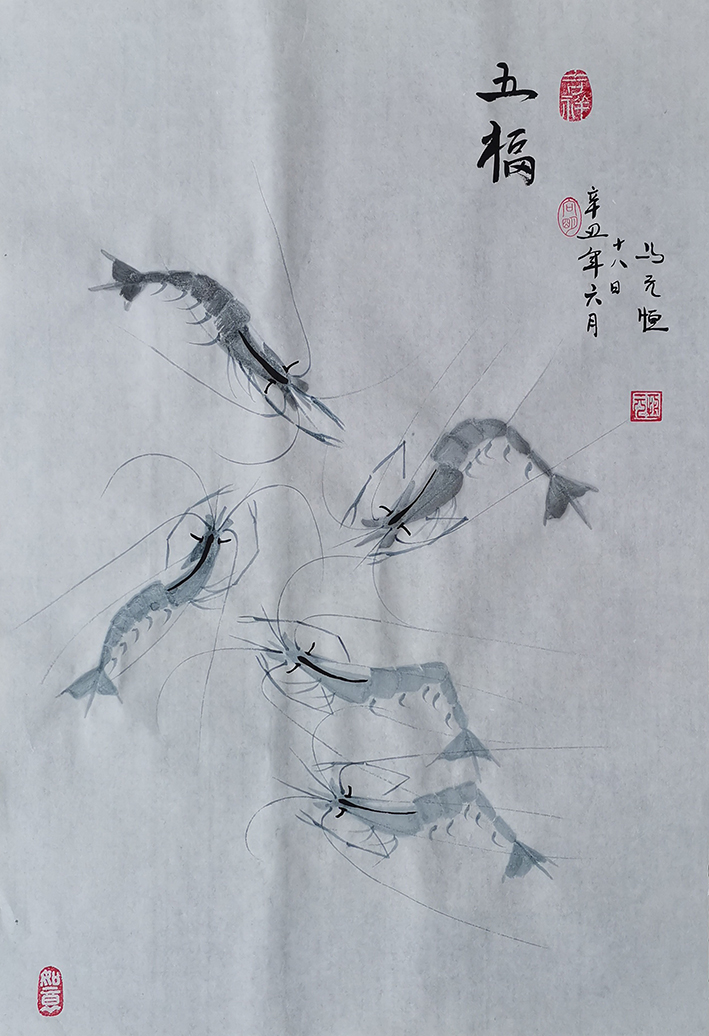 五福
吉祥
辛丑年六月
十八日
马元恒
如意